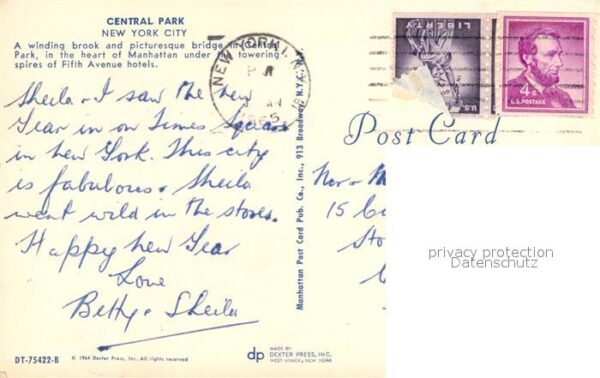 CENTRAL PARK
NEW YORK CITY
A winding brook and picturesque bridge in Central
Park, in the heart of Manhattan under the towering
spires of Fifth Avenue hotels.
Sheila & I saw the new
Year in on Times Square
in New York. This city
is fabulous. Sheila
went wild in the stores.
Happy New Year
Love
Betty & Sheila
DT-75422-B
© 1964 Dexter Press, Inc. All rights reserved
dp
MADE BY
DEXTER PRESS, INC.
WEST NYACK, NEW YORK
Manhattan Post Card Pub. Co., Inc., 913 Broadway, N.Y.C.
NEW YORK 1
JAN
1965
LIBERTY
U.S.
4¢
U.S. POSTAGE
Post Card
15
privacy protection
Datenschutz